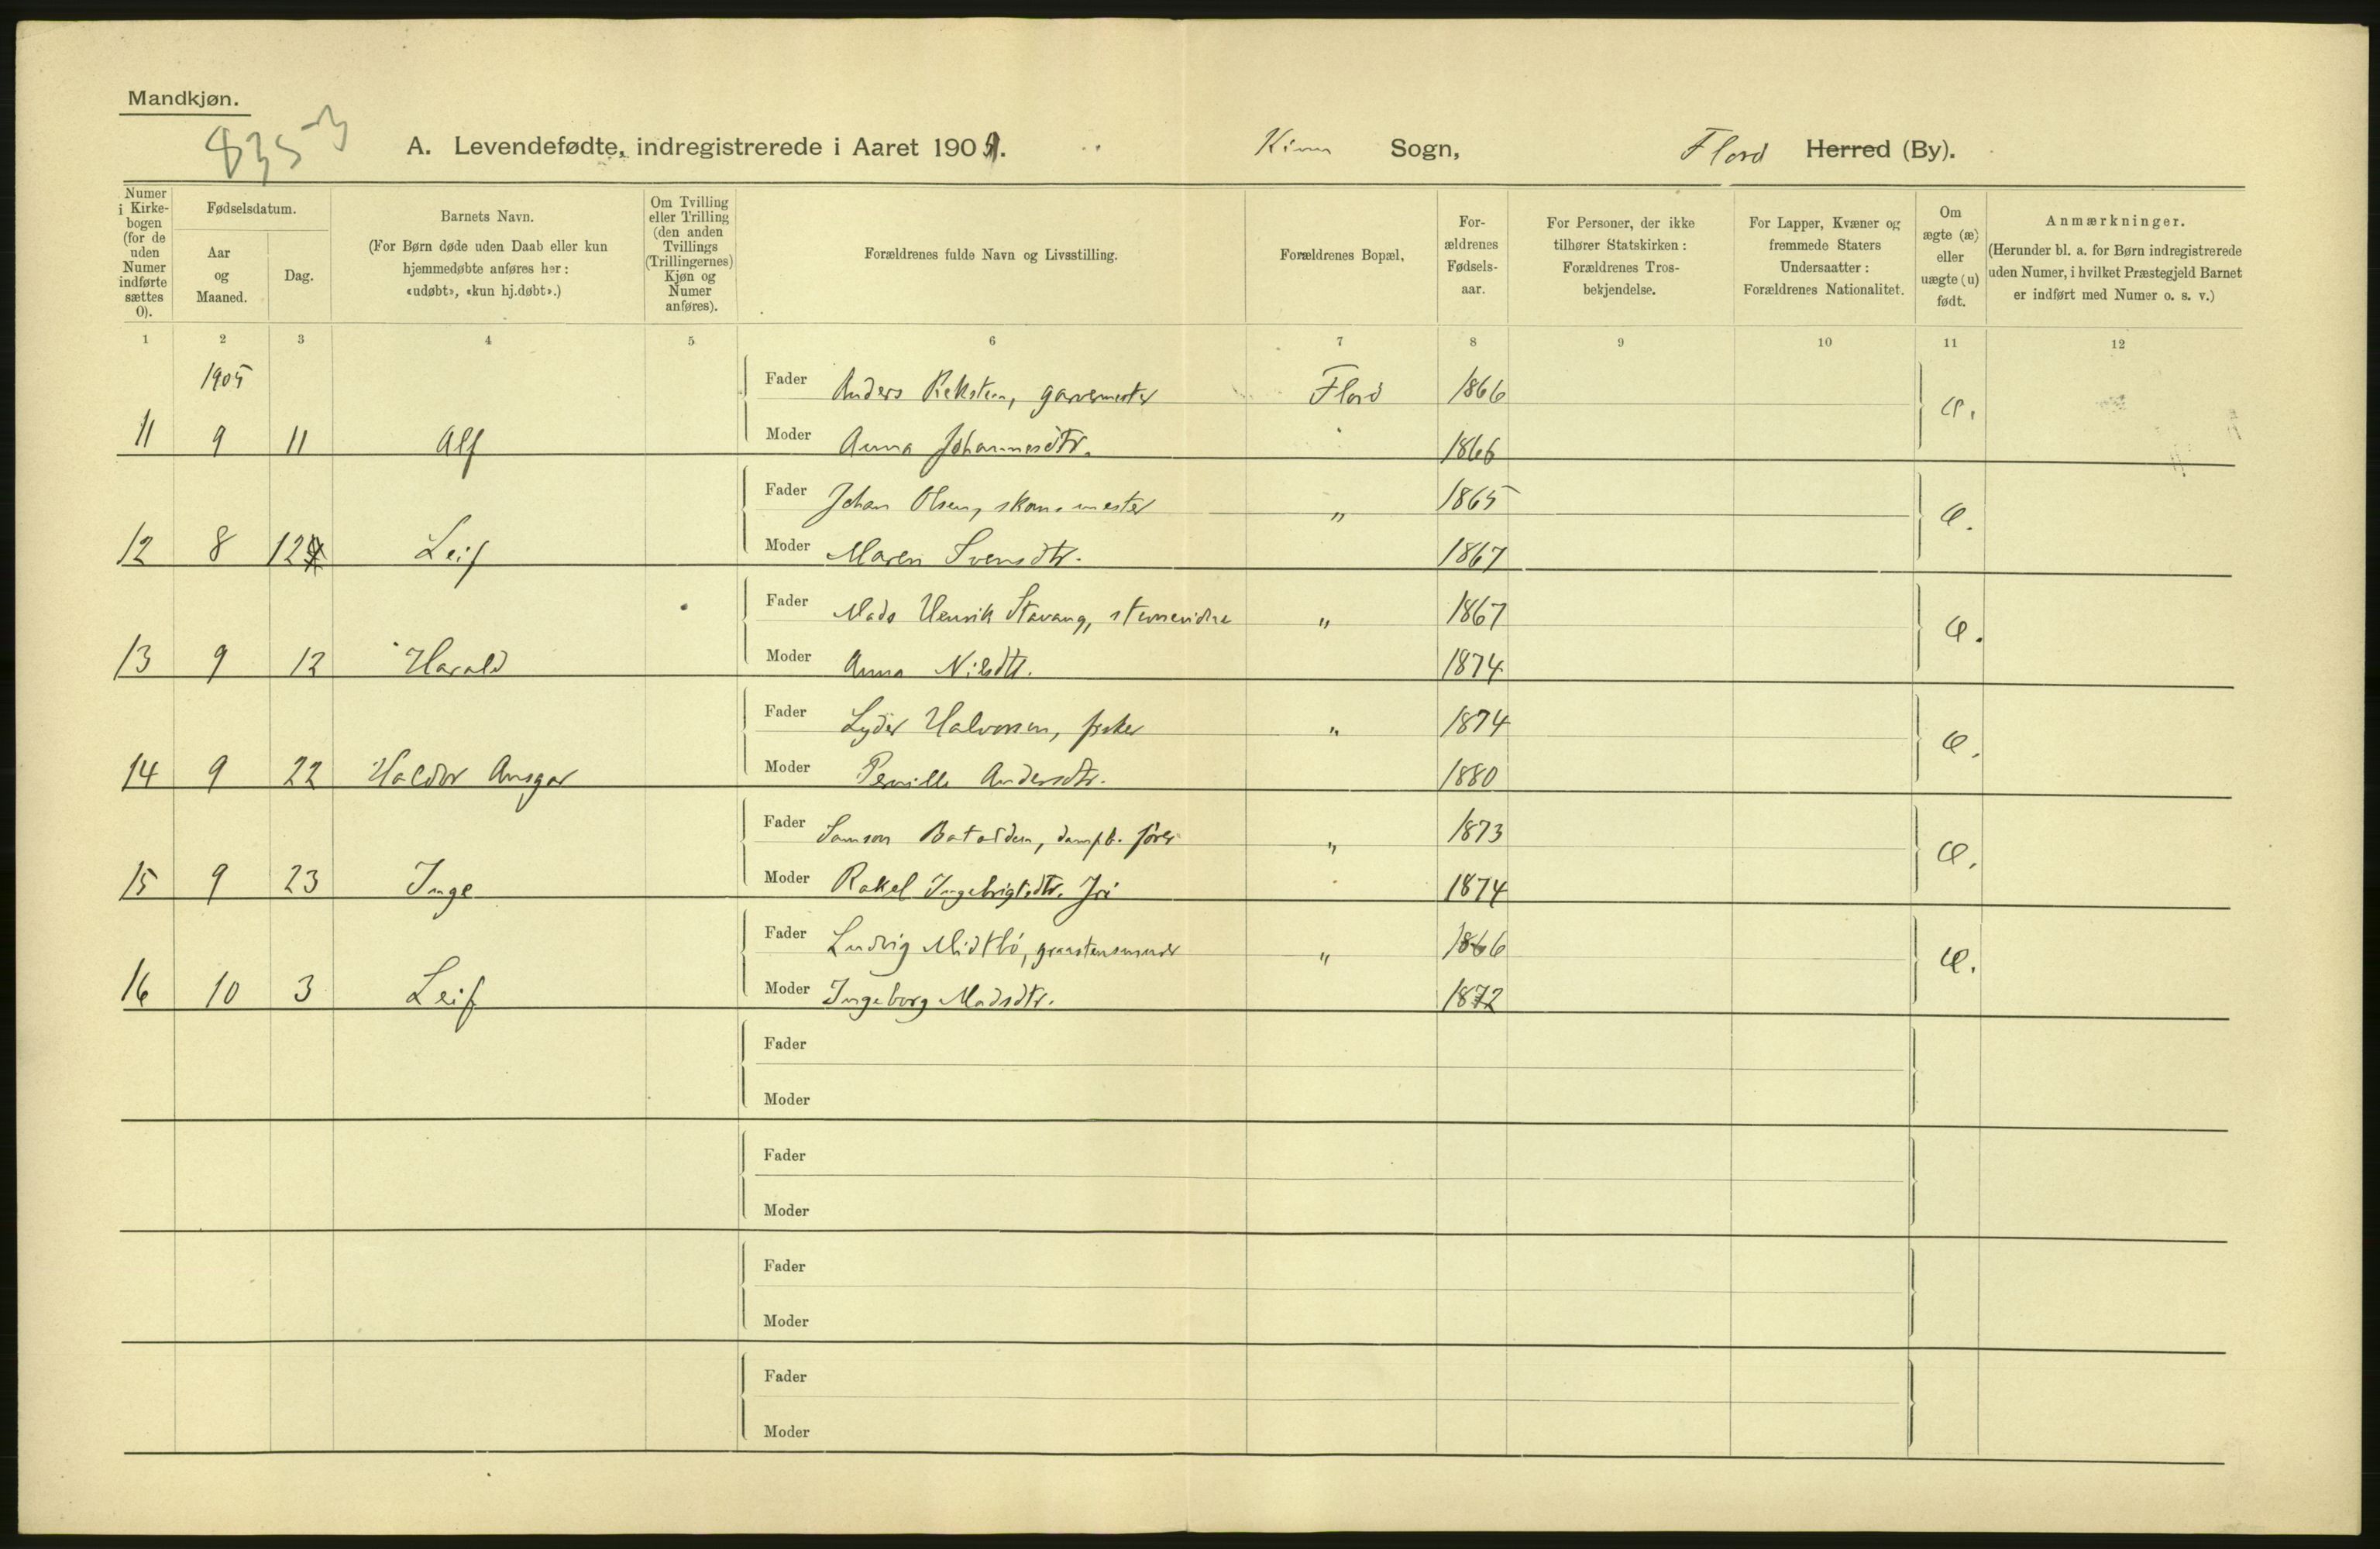 Mandkjøn.
835
A. Levendefødte, indregistrerede i Aaret 1905. Kinn Sogn, Florø Herred (By).
Numer i Kirkebogen (for de uden Numer indførte sættes 0).
Fødselsdatum.
Aar og Maaned.
Dag.
Barnets Navn.
(For Børn døde uden Daab eller kun hjemmedøbte anføres her: «udøbt», «kun hj.døbt».)
Om Tvilling eller Trilling (den anden Tvillings (Trillingernes) Kjøn og Numer anføres).
Forældrenes fulde Navn og Livsstilling.
Forældrenes Bopæl,
Forældrenes Fødselsaar.
For Personer, der ikke tilhører Statskirken: Forældrenes Trosbekjendelse.
For Lapper, Kvæner og fremmede Staters Undersaatter: Forældrenes Nationalitet.
Om ægte (æ) eller uægte (u) født.
Anmærkninger.
(Herunder bl. a. for Børn indregistrerede uden Numer, i hvilket Præstegjeld Barnet er indført med Numer o. s. v.)
1 2 3 4 5 6 7 8 9 10 11 12
1905
Fader Anders Reksten, garvermester Florø 1866 æ.
11 9 11 Alf Moder Anna Johannesdtr. 1866
Fader Johan Olsen, skomester " 1865 æ.
12 8 12 Leif Moder Maren Svensdtr. 1867
Fader Mads Henrik Stavang, " 1867 æ.
13 9 12 Harald Moder Anna Nilsdtr. 1874
Fader Lyder Halvorsen, fisker " 1874 æ.
14 9 22 Haldor Ansgar Moder Pernille Andersdtr. 1880
Fader Samson Batalden, dampb. fører " 1873 æ.
15 9 23 Inge Moder Rakel Ingebrigtsdtr. 1874
Fader Ludvig Midtbø, graastensmurer " 1866 æ.
16 10 3 Leif Moder Ingeborg Madsdtr. 1872
Fader
Moder
Fader
Moder
Fader
Moder
Fader
Moder